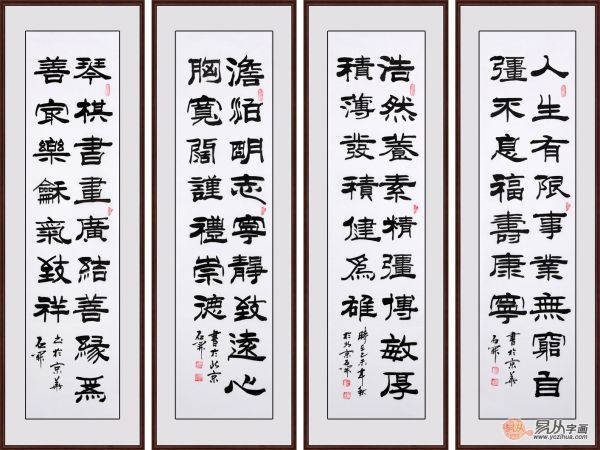 人生有限事業無窮自
彊不息福壽康寧
書於京華
浩然養素精彊博敏厚
積薄發積健為雄
時在乙未年秋
於北京
澹泊明志寧靜致遠心
胸寬闊謹禮崇德
書於北京
琴棋書畫廣結善緣為
善最樂龢氣致祥
於京華
易从字画
www.yczihua.com